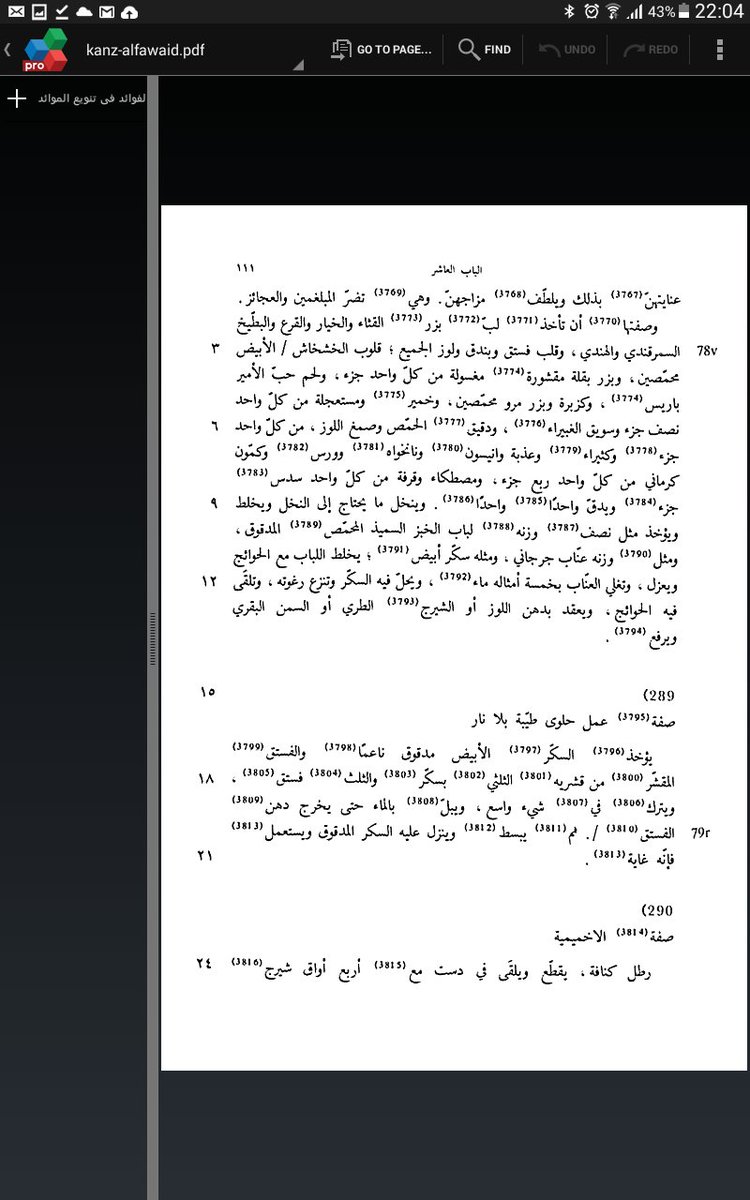 43% 22:04
kanz-alfawaid.pdf GO TO PAGE... FIND UNDO REDO
pro
لفوائد فى تنويع الموائد
الباب العاشر ١١١
عنايتهنّ(3767) بذلك ويلطّف(3768) مزاجهنّ . وهي(3769) تضرّ المبلغمين والعجائز .
وصفتها(3770) أن تأخذ(3771) لبّ(3772) بزر(3773) القثاء والخيار والقرع والبطّيخ
78v السمرقندي والهندي ، وقلب فستق وبندق ولوز الجميع ؛ قلوب الخشخاش / الأبيض ٣
محمّصين ، وبزر بقلة مقشورة(3774) مغسولة من كلّ واحد جزء ، ولحم حبّ الأمير
باريس(3774) ، وكزبرة وبزر مرو محمّصين ، وخمير(3775) ومستعجلة من كلّ واحد
نصف جزء وسويق الغبيراء(3776) ، ودقيق(3777) الحمّص وصمغ اللوز ، من كلّ واحد ٦
جزء(3778) وكثيراء(3779) وعذبة وانيسون(3780) ونانخواه(3781) وورس(3782) وكمّون
كرماني من كلّ واحد ربع جزء ، ومصطكاء وقرفة من كلّ واحد سدس(3783)
جزء(3784) ويدقّ واحدًا(3785) واحدًا(3786) . وينخل ما يحتاج إلى النخل ويخلط ٩
ويؤخذ مثل نصف(3787) وزنه(3788) لباب الخبز السميذ المحمّص(3789) المدقوق ،
ومثل(3790) وزنه عنّاب جرجاني ، ومثله سكّر أبيض(3791) ؛ يخلط اللباب مع الحوائج
ويعزل ، وتغلي العنّاب بخمسة أمثاله ماء(3792) ، ويحلّ فيه السكّر وتنزع رغوته ، وتلقَى ١٢
فيه الحوائج ، ويعقد بدهن اللوز أو الشيرج(3793) الطري أو السمن البقري
ويرفع(3794) .
289) ١٥
صفة(3795) عمل حلوى طيّبة بلا نار
يؤخذ(3796) السكّر(3797) الأبيض مدقوق ناعمًا(3798) والفستق(3799)
المقشّر(3800) من قشريه(3801) الثلثي(3802) بسكّر(3803) والثلث(3804) فستق(3805) ، ١٨
ويترك(3806) في(3807) شيء واسع ، ويبلّ(3808) بالماء حتى يخرج دهن(3809)
79r الفستق(3810) /. ثم(3811) يبسط(3812) وينزل عليه السكر المدقوق ويستعمل(3813)
فإنّه غاية(3813) . ٢١
290)
صفة(3814) الاخميمية
رطل كنافة ، يقطّع ويلقَى في دست مع(3815) أربع أواق شيرج(3816) ٢٤